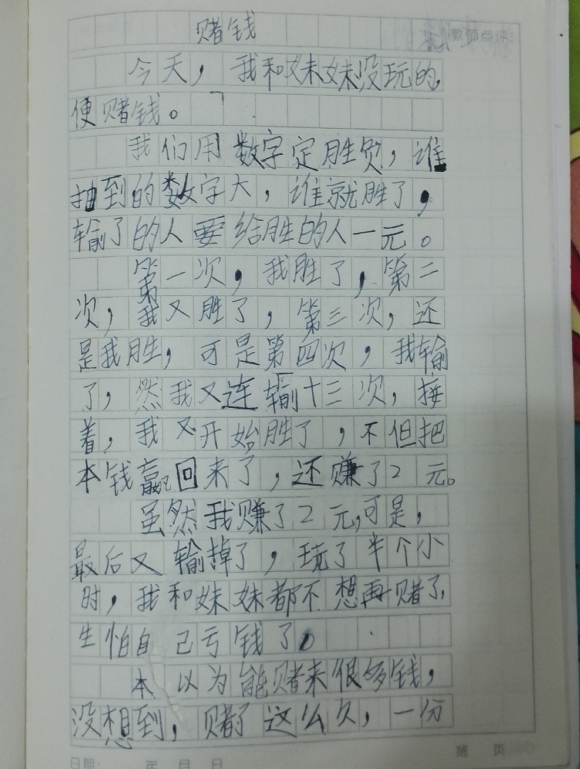 赌钱
今天，我和妹妹没玩的，
便赌钱。
我们用数字定胜负，谁
抽到的数字大，谁就胜了，
输了的人要给胜的人一元。
第一次，我胜了，第二
次，我又胜了，第三次，还
是我胜，可是第四次，我输
了，然我又连输十三次，接
着，我又开始胜了，不但把
本钱赢回来了，还赚了2元。
虽然我赚了2元，可是，
最后又输掉了，玩了半个小
时，我和妹妹都不想再赌了，
生怕自己亏钱了。
本以为能赌来很多钱，
没想到，赌了这么久，一份
日期： 年 月 日 第 页